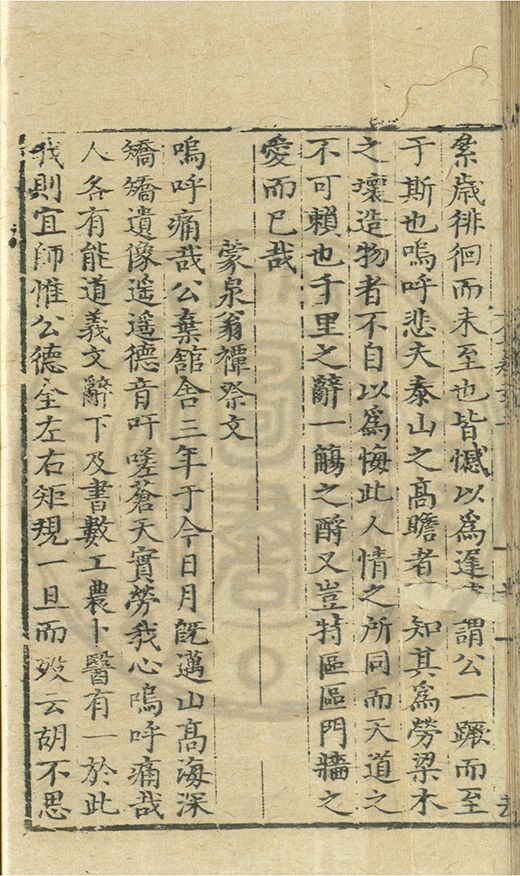 絫歲徘徊而未至也皆憾以爲遲謂公一蹶而至
于斯也嗚呼悲夫泰山之高瞻者知其爲勞梁木
之壞造物者不自以爲悔此人情之所同而天道之
不可賴也千里之辭一觴之酹又豈特區區門牆之
愛而已哉
蒙泉翁禫祭文
嗚呼痛哉公棄舘舍三年于今日月旣邁山高海深
矯矯遺像遥遥德音吁嗟蒼天實勞我心嗚呼痛哉
人各有能道義文辭下及書數工農卜醫有一於此
我則宜師惟公德全左右矩規一旦而歿云胡不思